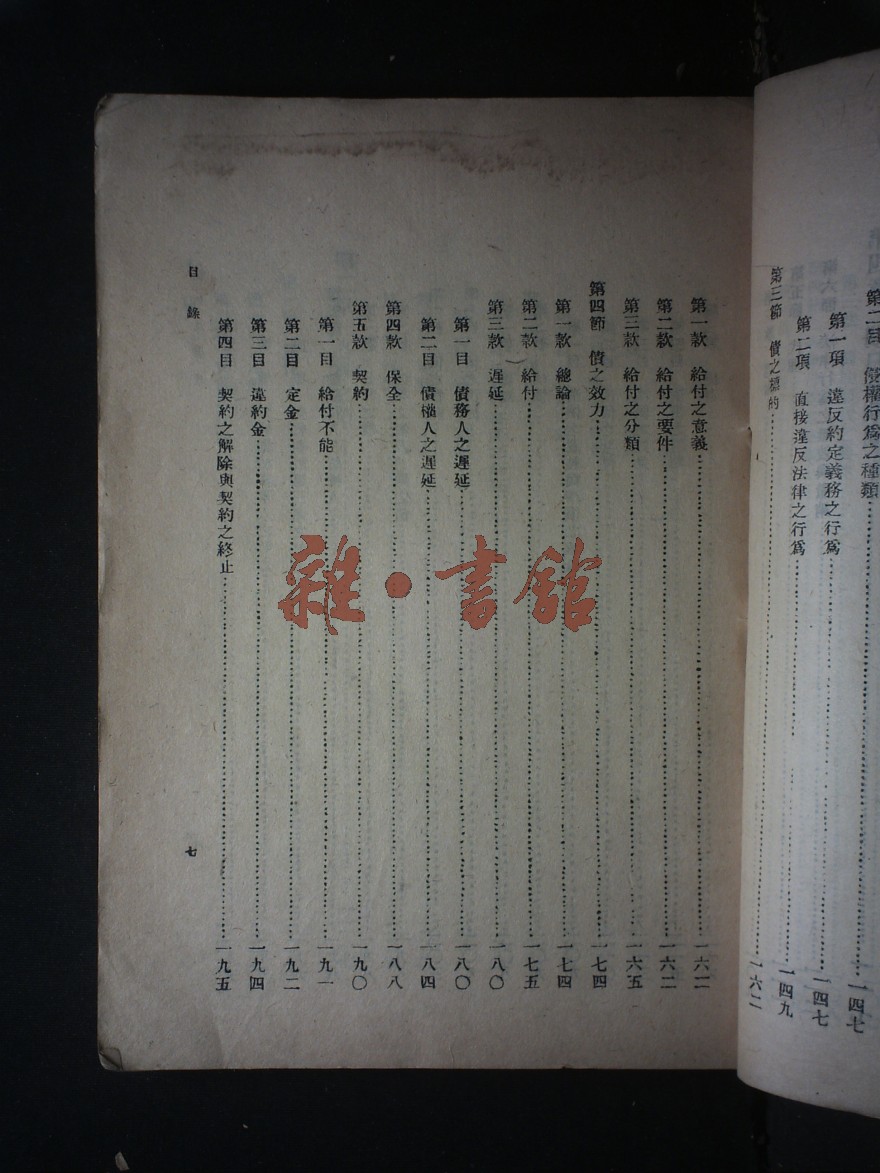 第二目　侵權行爲之種類……一四七
第一項　違反約定義務之行爲……一四七
第二項　直接違反法律之行爲……一四九
第三節　債之標的……一六二
第一款　給付之意義……一六二
第二款　給付之要件……一六二
第三款　給付之分類……一六五
第四節　債之效力……一七四
第一款　總論……一七四
第二款　給付……一七五
第三款　遲延……一八〇
第一目　債務人之遲延……一八〇
第二目　債權人之遲延……一八四
第四款　保全……一八八
第五款　契約……一九〇
第一目　給付不能……一九一
第二目　定金……一九二
第三目　違約金……一九四
第四目　契約之解除與契約之終止……一九五
目　錄　七
雜·書館